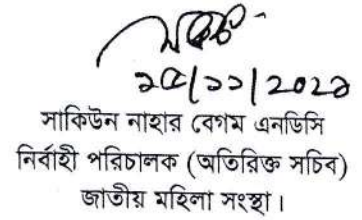 সাকিউন নাহার বেগম এনডিসি
নির্বাহী পরিচালক (অতিরিক্ত সচিব)
জাতীয় মহিলা সংস্থা।